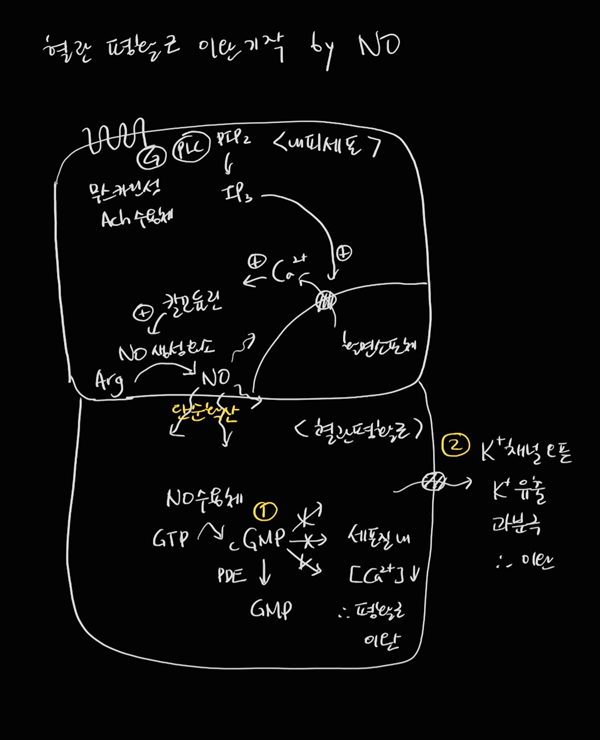 혈관 평활근 이완기작 by NO
G PLC PIP2 <내피세포>
무스카린성
Ach 수용체
IP3
⊕
⊕ Ca2+
칼모듈린
⊕
NO 생성효소
Arg NO
활면소포체
단순확산
<혈관평활근>
② K+채널 오픈
K+ 유출
과분극
∴ 이완
NO수용체 ①
GTP cGMP 세포질 내
PDE [Ca2+]↓
GMP ∴ 평활근
이완